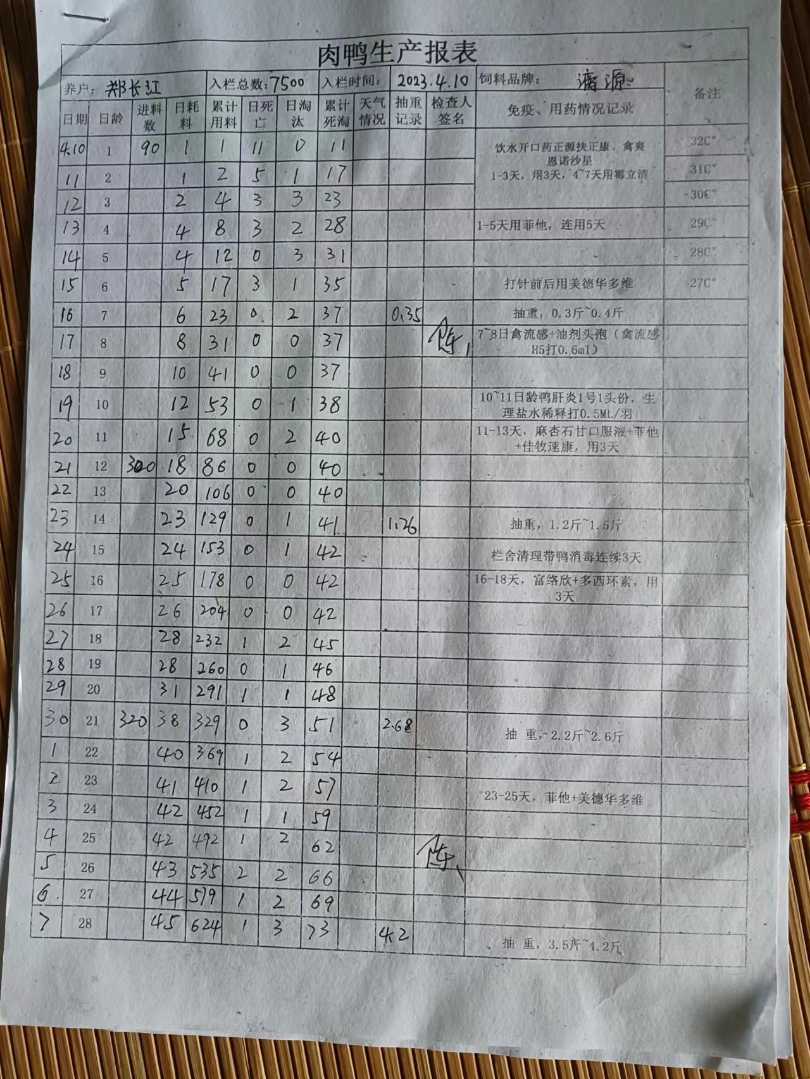 肉鸭生产报表
养户: 郑长江 入栏总数:7500 入栏时间: 2023.4.10 饲料品牌: 源 备注
日期 日龄 进料数 日耗料 累计用料 日死亡 日淘汰 累计死淘 天气情况 抽重记录 检查人签名 免疫、用药情况记录
4.10 1 90 1 1 11 0 11 饮水开口药正源扶正康、禽爽 32C°
恩诺沙星
11 2 1 2 5 1 17 1-3天,用3天,4~7天用霉立清 31C°
12 3 2 4 3 3 23 30C°
13 4 4 8 3 2 28 1-5天用菲他,连用5天 29C°
14 5 4 12 0 3 31 28C°
15 6 5 17 3 1 35 打针前后用美德华多维 27C°
16 7 6 23 0 2 37 0.35 抽重,0.3斤~0.4斤
17 8 8 31 0 0 37 陈 7~8日禽流感+油剂头孢(禽流感
H5打0.6ml)
18 9 10 41 0 0 37
19 10 12 53 0 1 38 10~11日龄鸭肝炎1号1头份,生
理盐水稀释打0.5ML/羽
20 11 15 68 0 2 40 11-13天,麻杏石甘口服液+菲他
+佳牧速康,用3天
21 12 320 18 86 0 0 40
22 13 20 106 0 0 40
23 14 23 129 0 1 41 1.26 抽重,1.2斤~1.5斤
24 15 24 153 0 1 42 栏舍清理带鸭消毒连续3天
25 16 25 178 0 0 42 16-18天,富络欣+多西环素,用
3天
26 17 26 204 0 0 42
27 18 28 232 1 2 45
28 19 28 260 0 1 46
29 20 31 291 1 1 48
30 21 320 38 329 0 3 51 2.68 抽 重,2.2斤~2.6斤
1 22 40 369 1 2 54
2 23 41 410 1 2 57 23-25天,菲他+美德华多维
3 24 42 452 1 1 59
4 25 42 492 1 2 62 陈
5 26 43 535 2 2 66
6 27 44 579 1 2 69
7 28 45 624 1 3 73 4.2 抽 重,3.5斤~4.2斤